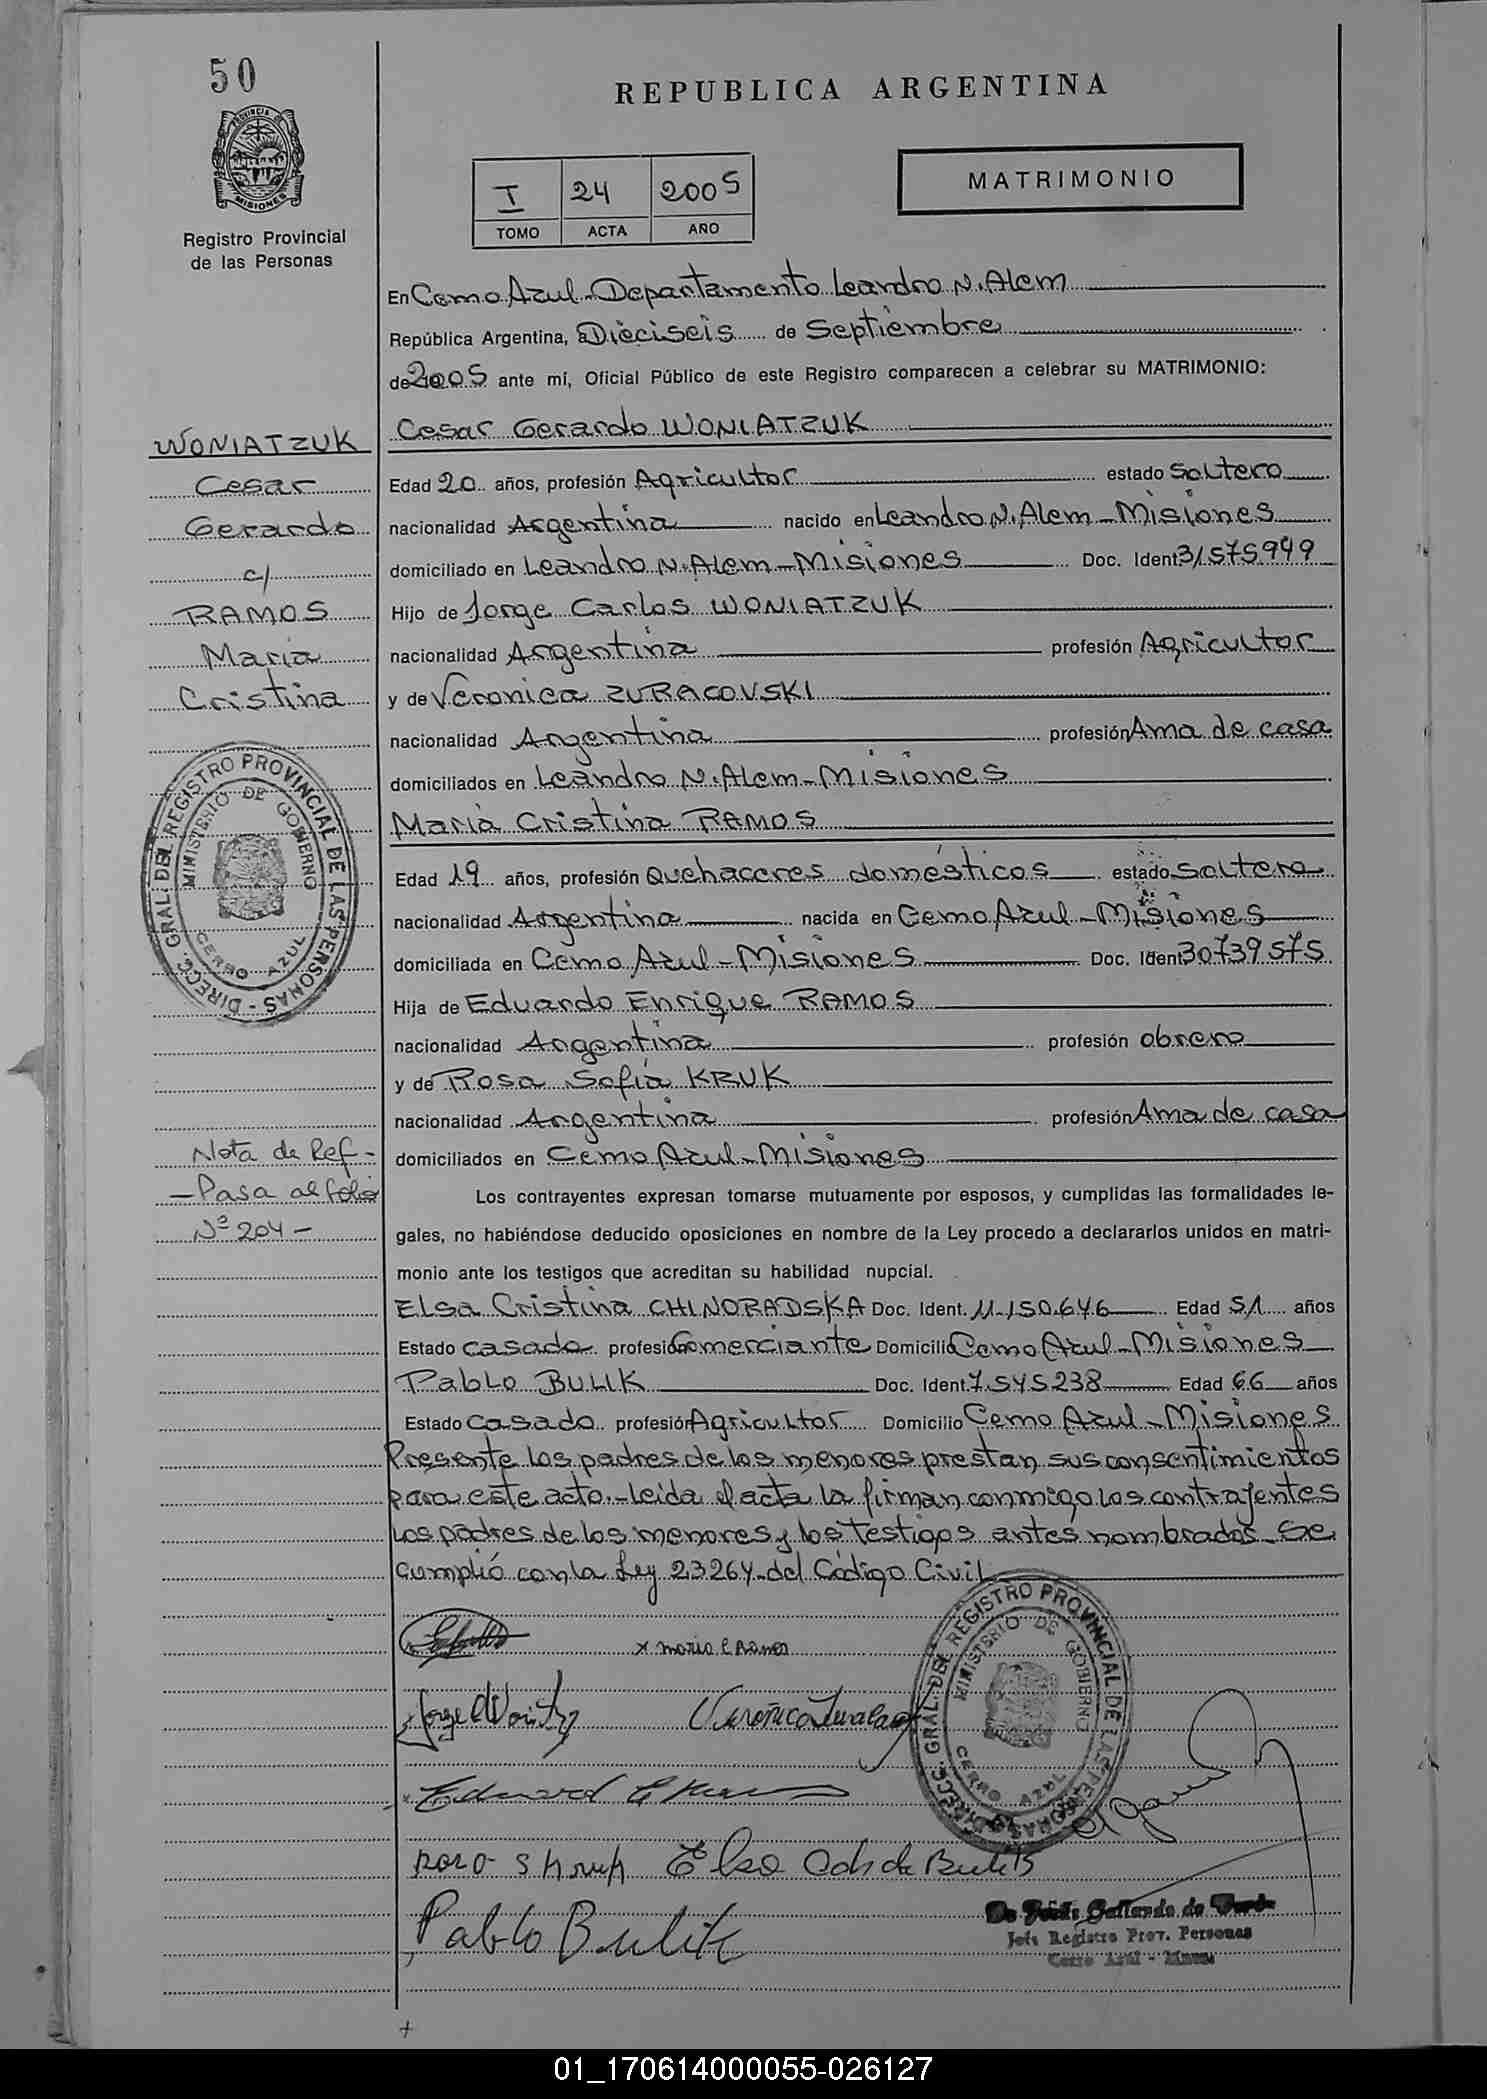 50
REPUBLICA ARGENTINA
PROVINCIA DE MISIONES
I 24 2005
TOMO ACTA AÑO
MATRIMONIO
Registro Provincial
de las Personas
En Cerro Azul - Departamento Leandro N. Alem
República Argentina, Dieciseis de Septiembre
de 2005 ante mí, Oficial Público de este Registro comparecen a celebrar su MATRIMONIO:
WONIATZUK
Cesar
Gerardo
c/
RAMOS
Maria
Cristina
Cesar Gerardo WONIATZUK
Edad 20 años, profesión Agricultor estado Soltero
nacionalidad Argentina nacido en Leandro N. Alem - Misiones
domiciliado en Leandro N. Alem - Misiones Doc. Ident 31575949
Hijo de Jorge Carlos WONIATZUK
nacionalidad Argentina profesión Agricultor
y de Veronica ZURACOVSKI
nacionalidad Argentina profesión Ama de casa
domiciliados en Leandro N. Alem - Misiones
Maria Cristina RAMOS
DIRECC. GRAL. DEL REGISTRO PROVINCIAL DE LAS PERSONAS -
MINISTERIO DE GOBIERNO
CERRO AZUL
Edad 19 años, profesión Quehaceres domésticos estado Soltera
nacionalidad Argentina nacida en Cerro Azul - Misiones
domiciliada en Cerro Azul - Misiones Doc. Ident 30739575
Hija de Eduardo Enrique RAMOS
nacionalidad Argentina profesión obrero
y de Rosa Sofia KRUK
nacionalidad Argentina profesión Ama de casa
domiciliados en Cerro Azul - Misiones
Nota de Ref -
- Pasa al folio
Nº 204 -
Los contrayentes expresan tomarse mutuamente por esposos, y cumplidas las formalidades le-
gales, no habiéndose deducido oposiciones en nombre de la Ley procedo a declararlos unidos en matri-
monio ante los testigos que acreditan su habilidad nupcial.
Elsa Cristina CHINORADSKA Doc. Ident. 11.150.646 Edad 51 años
Estado casada profesión Comerciante Domicilio Cerro Azul - Misiones
Pablo BULIK Doc. Ident. 7.545238 Edad 66 años
Estado casado profesión Agricultor Domicilio Cerro Azul - Misiones
Presente los padres de los menores prestan sus consentimientos
para este acto. - Leida el acta la firman conmigo los contrayentes
los padres de los menores y los testigos antes nombrados. Se
cumplió con la Ley 23264 del Código Civil
x maria C Ramos
DIRECC. GRAL. DEL REGISTRO PROVINCIAL DE LAS PERSONAS
MINISTERIO DE GOBIERNO
CERRO AZUL
Pablo Bulik
Jefe Registro Prov. Personas
Cerro Azul - Mnes.
01_170614000055-026127